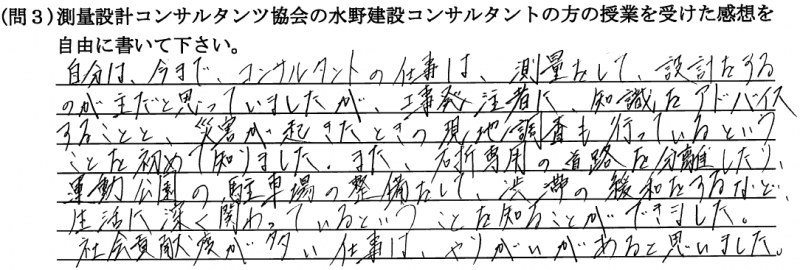 (問3)測量設計コンサルタンツ協会の水野建設コンサルタントの方の授業を受けた感想を
自由に書いて下さい。
自分は、今まで、コンサルタントの仕事は、測量をして、設計をする
のが主だと思っていましたが、工事発注者に、知識をアドバイス
することと、災害が起きたときの現地調査も行っているという
ことを初めて知りました。また、右折専用の道路を分離したり、
運動公園の駐車場の整備をして、渋滞の緩和をするなど、
生活に深く関わっているということを知ることができました。
社会貢献度が多い仕事は、やりがいがあると思いました。